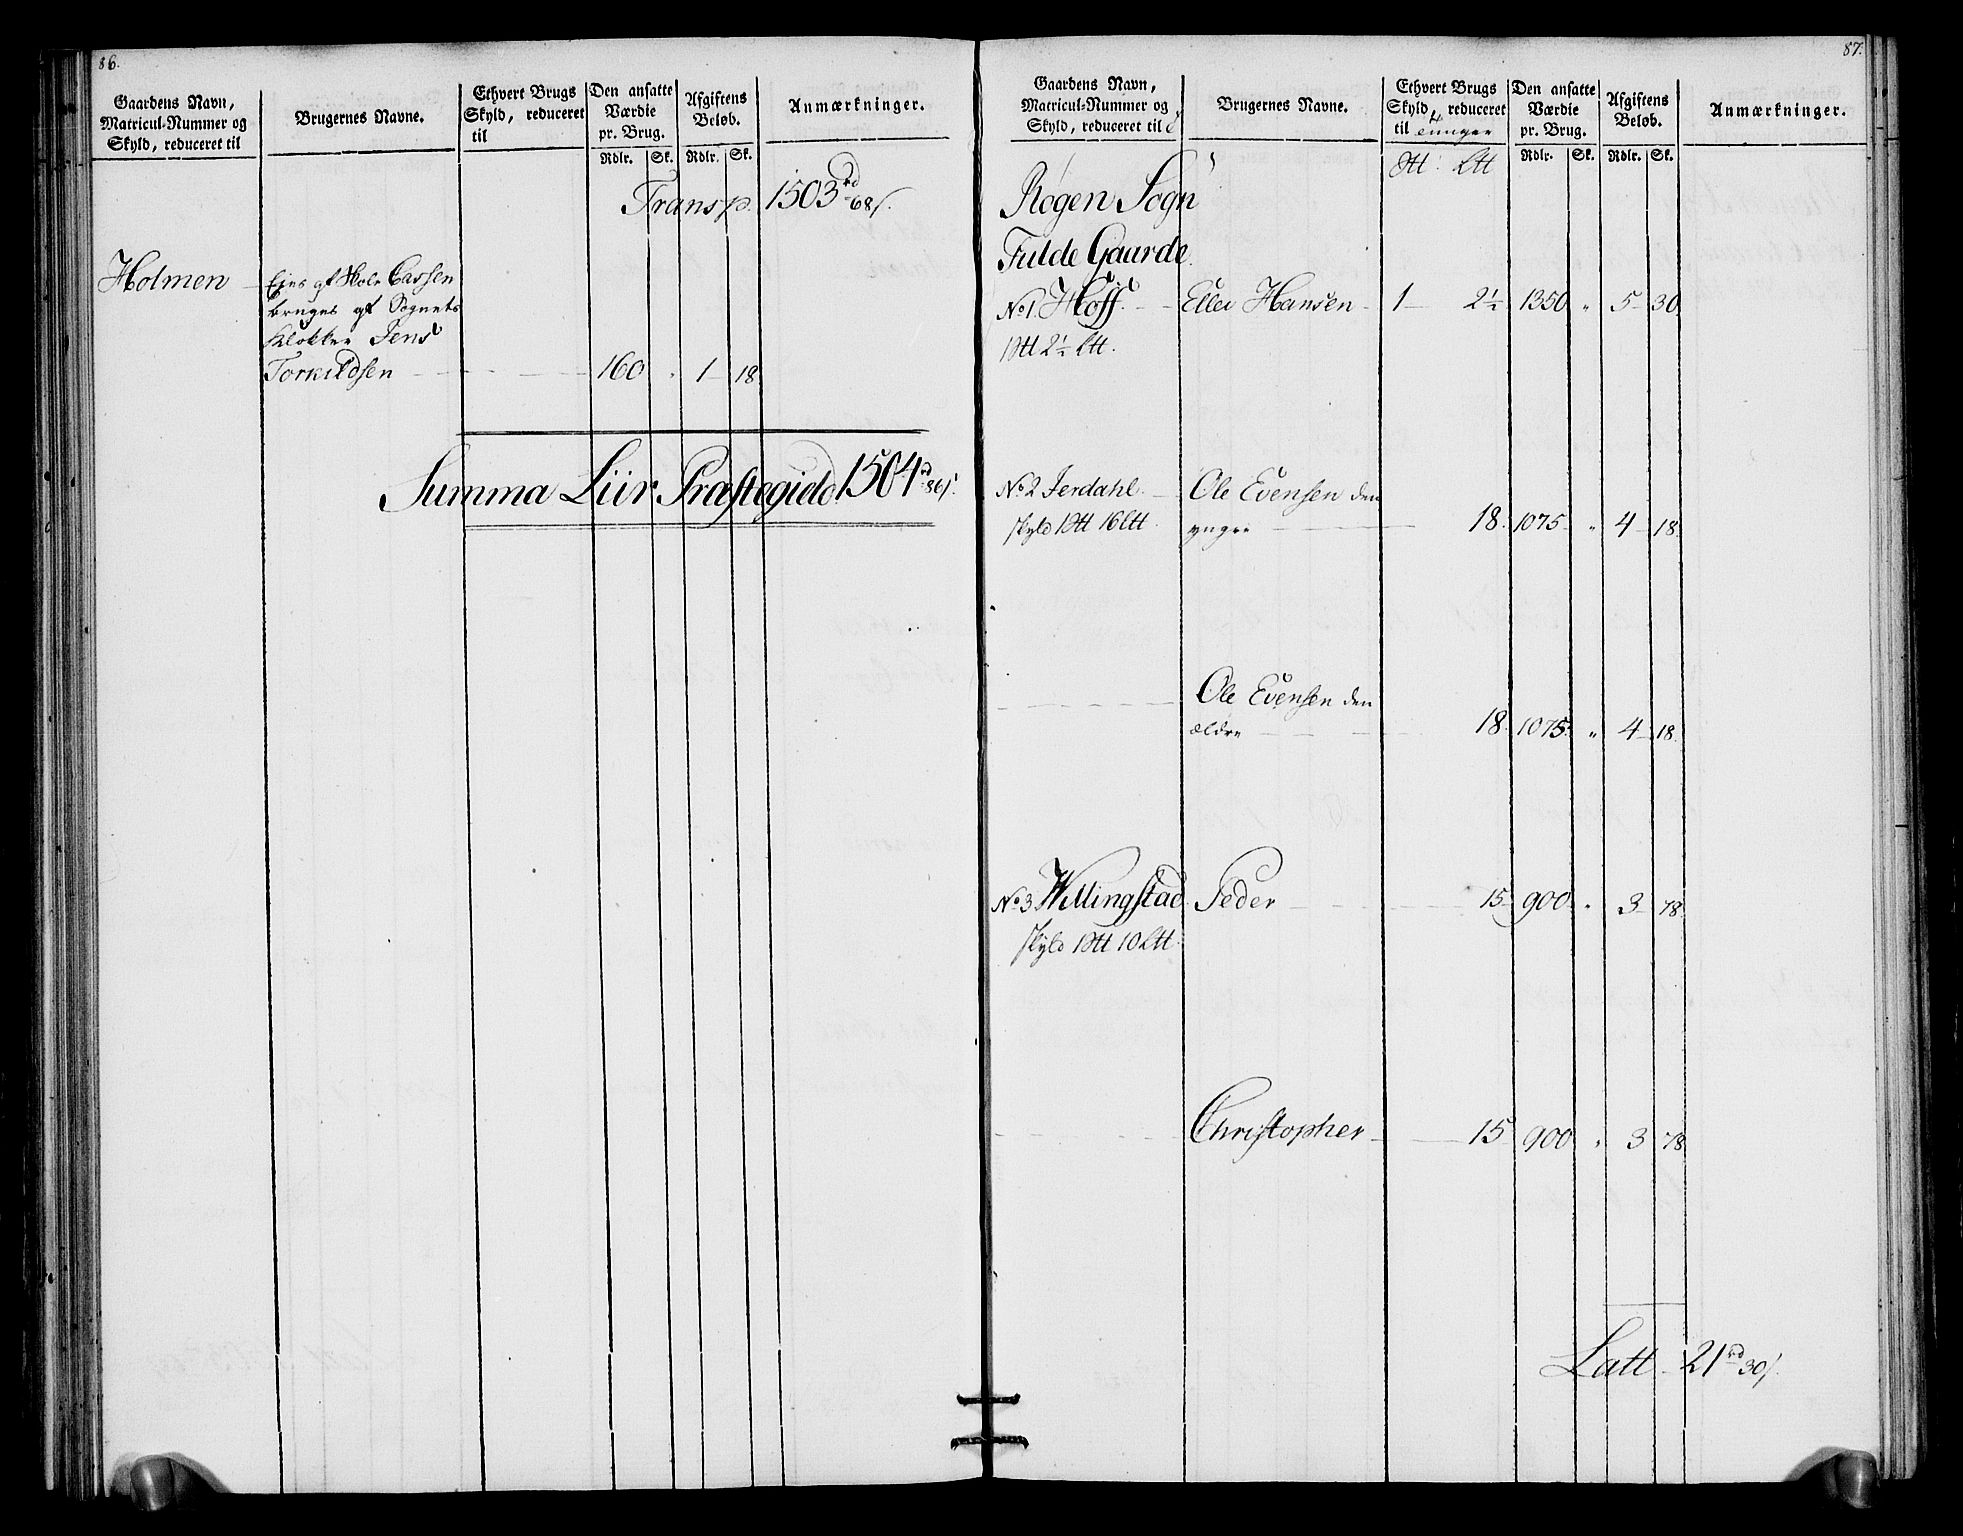 86.
Gaardens Navn,
Matricul-Nummer og
Skyld, reduceret til
Brugernes Navne.
Ethvert Brugs
Skyld, reduceret
til
Den ansatte
Værdie
pr. Brug.
Rdlr. Sk.
Afgiftens
Beløb.
Rdlr. Sk.
Anmærkninger.
Transp. 1503 rd 68 s.
Holmen – Ejes af Niels Carssen
bruges af Sognets
Klokker Jens
Torkildsen – 160 " 1 – 18.
Summa Liir Præstegield 1504 rd 86 s.
87.
Gaardens Navn,
Matricul-Nummer og
Skyld, reduceret til
Brugernes Navne.
Ethvert Brugs
Skyld, reduceret
til
Den ansatte
Værdie
pr. Brug.
Rdlr. Sk.
Afgiftens
Beløb.
Rdlr. Sk.
Anmærkninger.
Røgen Sogn
Fulde Gaarde.
No 1. Hoff. – Eller Hansen – 1 – 2½ 1350 " 5 – 30.
No 2 Jerdahl. – Ole Evensen den
yngre – 18. 1075 " 4 – 18.
Ole Evensen den
ældre – 18. 1075 " 4 – 18.
No 3 Willingstad Peder – 15 – 900 " 3 – 78.
Christopher – 15 900 " 3 78.
Latt – 21 rd 30 s.